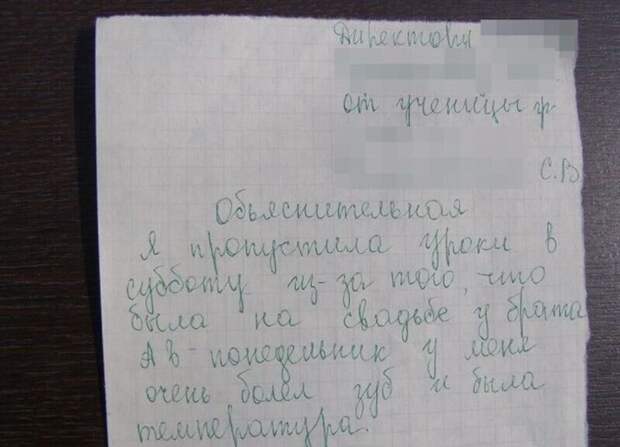 Директору
от ученицы гр.
С.В
Обьяснительная
Я пропустила уроки в
субботу из-за того, что
была на свадьбе у брата
А в понедельник у меня
очень болел зуб и была
температура.